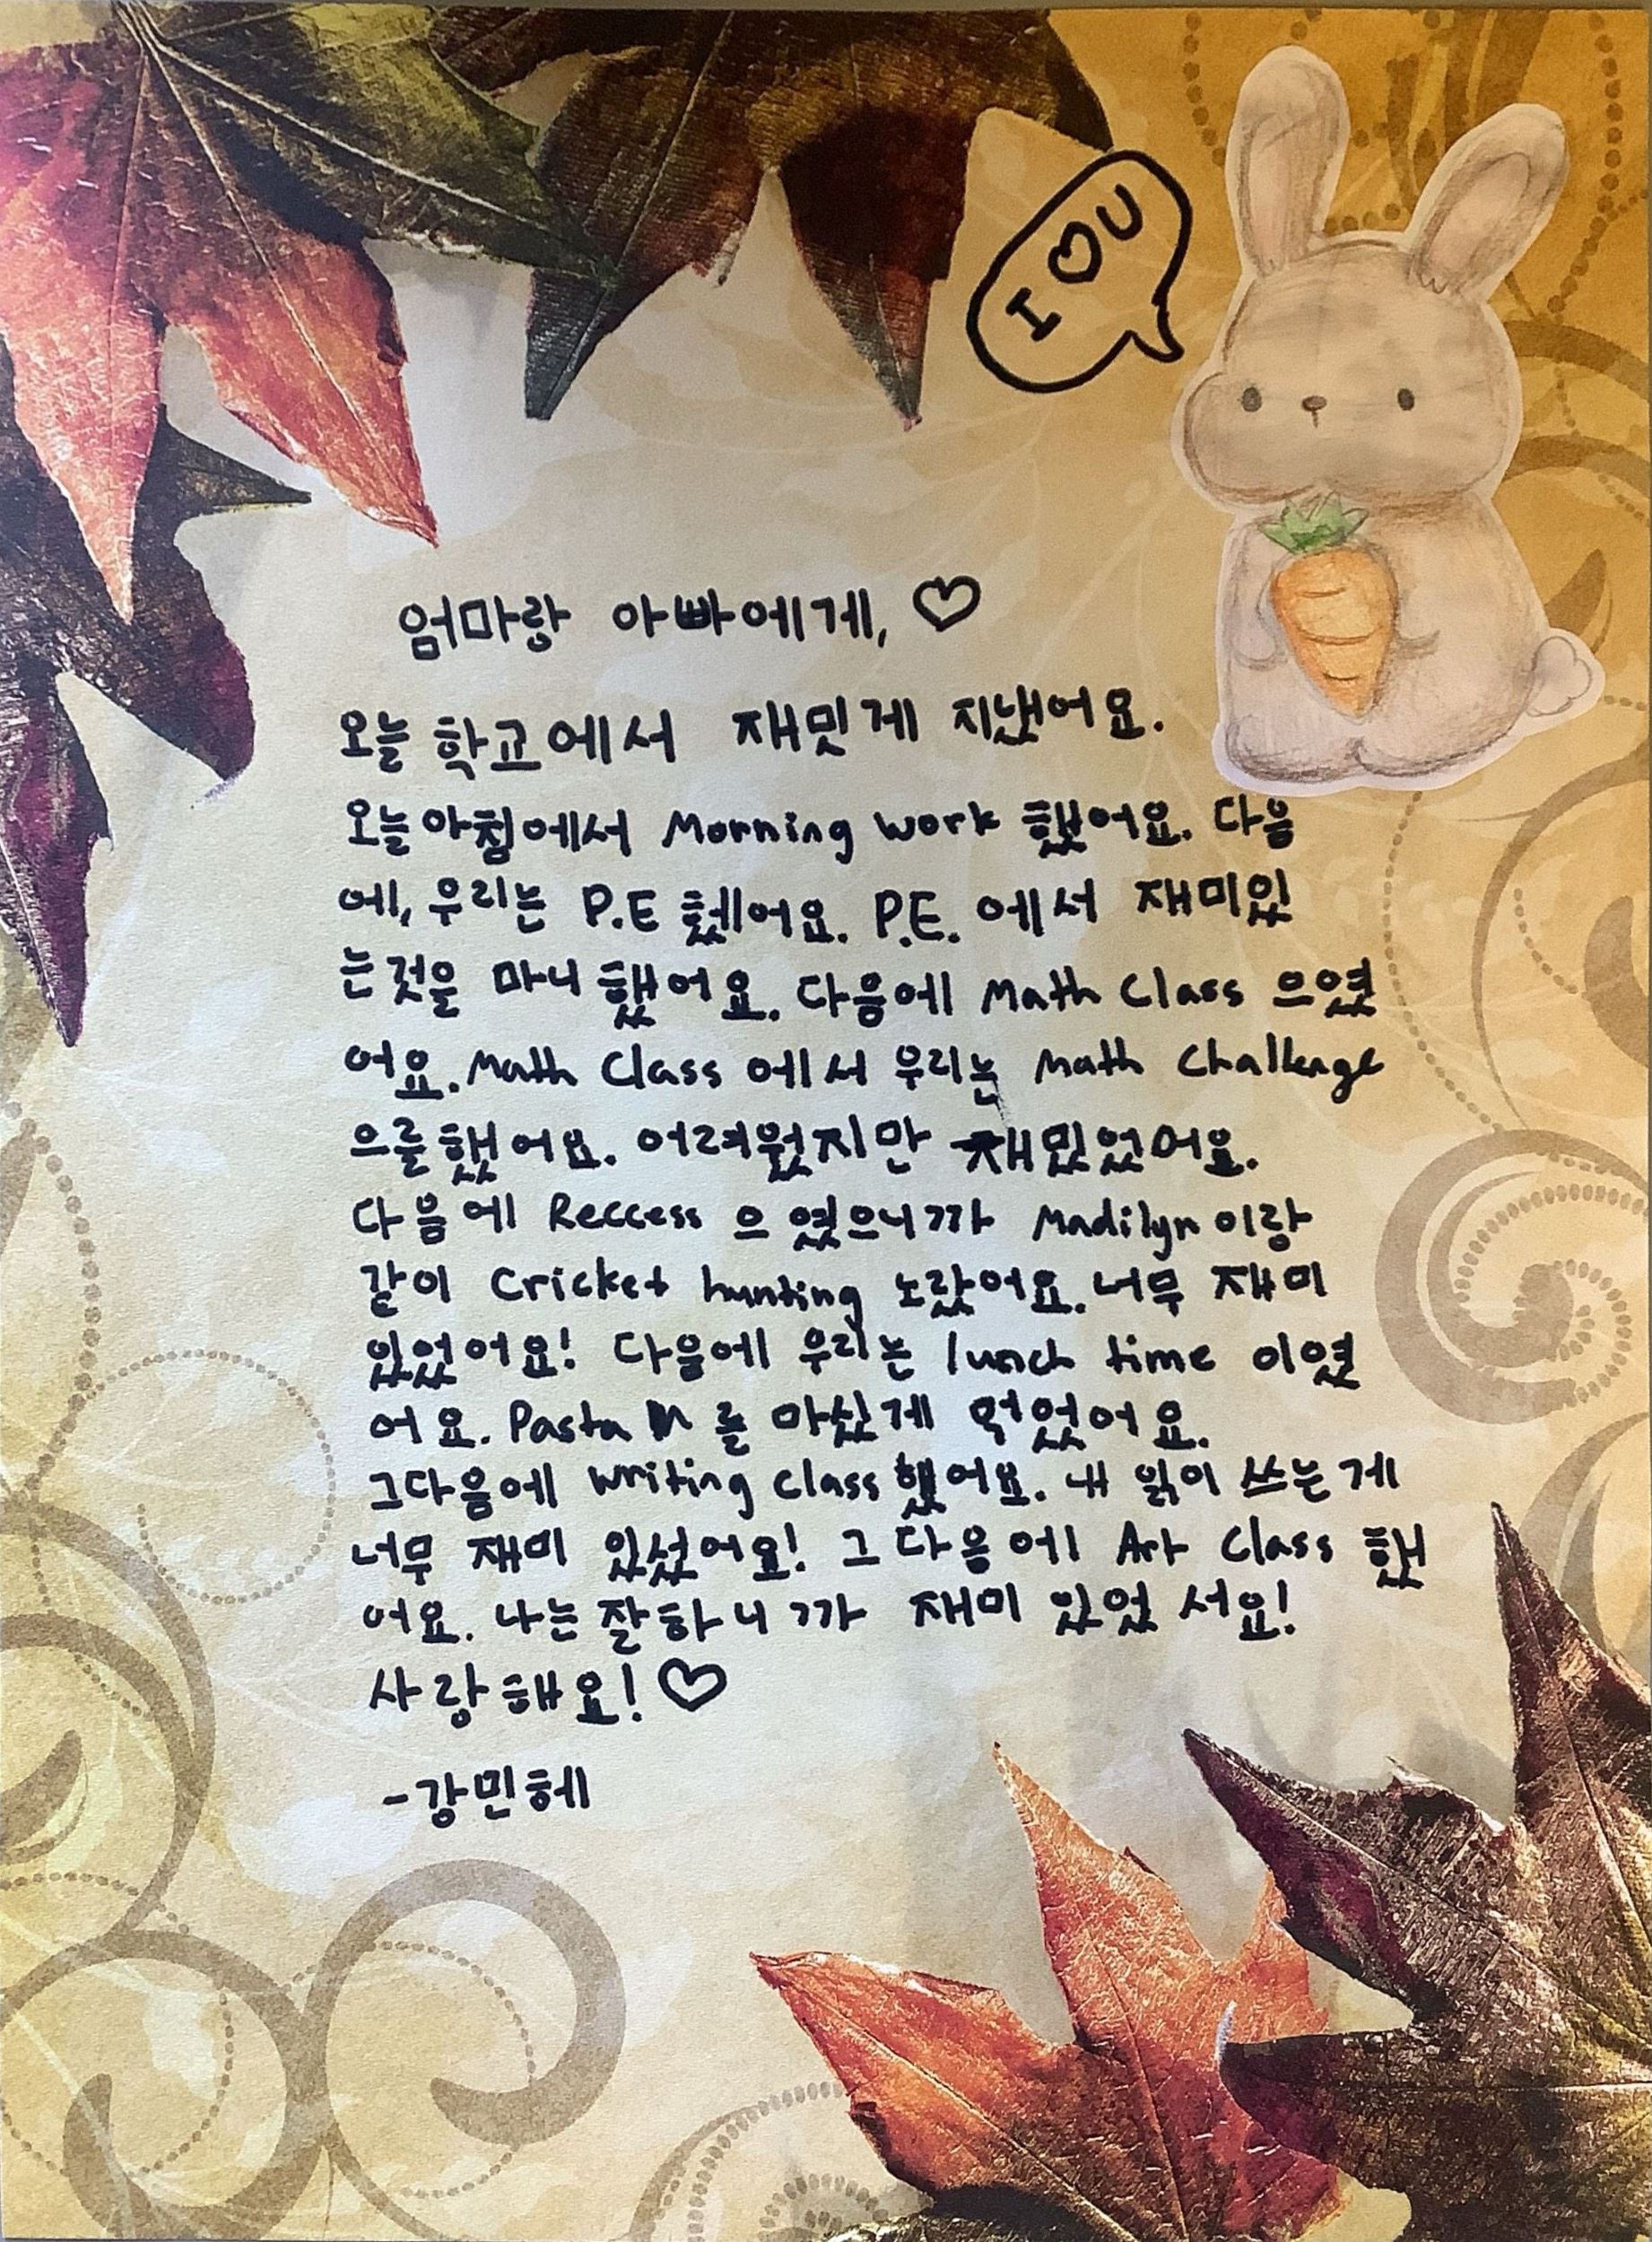 I ♡ U
엄마랑 아빠에게, ♡
오늘 학교에서 재밋게 지냈어요.
오늘아침에서 Morning work 했어요. 다음
에, 우리는 P.E 헸어요. P.E. 에서 재미있
는것을 마니 했어요. 다음에 Math Class 으였
어요. Math Class 에서 우리는 Math Challenge
으를 했어요. 어려웠지만 재밌었어요.
다음에 Reccess 으 였으니까 Madilyn 이랑
같이 Cricket hunting 노랐어요. 너무 재미
있었어요! 다음에 우리는 lunch time 이였
어요. Pasta 를 마싰게 먹었어요.
그다음에 writing class 했어요. 내 읽이 쓰는게
너무 재미 있섰어요! 그 다음에 Art Class 했
어요. 나는 잘하니까 재미 있었 서요!
사랑해요! ♡
-강민헤